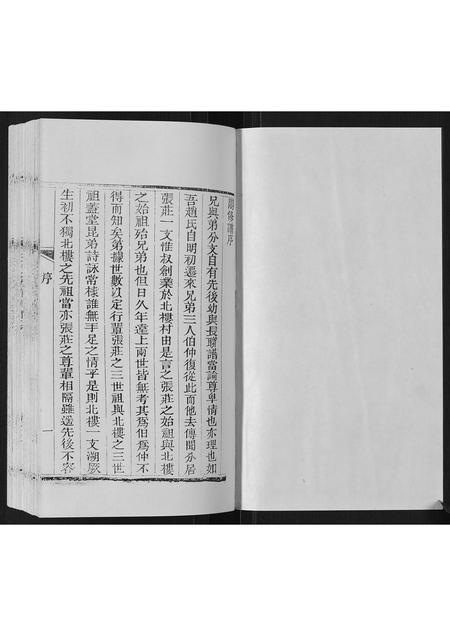 修譜序
兄與弟分支自有先後幼與長聯譜當論尊卑情也亦理也如
吾趙氏自明初遷來兄弟三人伯仲復從此而他去傳聞分居
張莊一支惟叔創業於北樓村由是言之張莊之始祖與北樓
之始祖殆兄弟也但日久年遠上兩世皆無考其爲伯爲仲不
得而知矣弟據世數以定行輩張莊之三世祖與北樓之三世
祖蓋堂昆弟詩詠常棣誰無手足之情乎是則北樓一支溯厥
生初不獨北樓之先祖當亦張莊之尊輩相隔雖遙先後不容
序
一